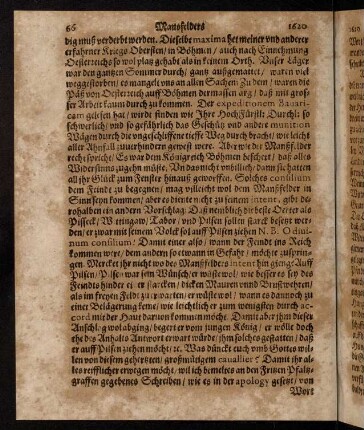 66 Mansfelders 1620
dig muß verderbt werden. Dieselbe maxima het meiner vnd anderer
erfahrner Kriegs Obersten / in Böhmen / auch nach Einnehmung
Oesterreichs so wol platz gehabt als in keinem Orth. Vnser Läger
war den gantzen Sommer durch / gantz außgemattet / waren viel
weggestorben / es mangelt vns an allen Sachen: Zu dem / waren die
Päß von Oesterreich auff Böhmen dermassen arg / daß mit gros-
ser Arbeit kaum durch zu kommen. Der expeditionem Bavari-
cam gelesen hat / wird finden wie Ihre Hoch Fürstl: Durchl: so
schwerlich / vnd so gefährlich das Geschütz vnd andere munition
Wägen durch die vngeschlossene tieffe Wäg durch bracht / wie leicht
aller Ahnfall zuuerhindern gewest were. Aber wie der Manßfelder
recht spricht / Es war dem Königreich Böhmen beschert / daß alles
Widersinns zugehn müste. Vnd was nicht wol bleib / damsie hatten
all ihr Glück zum Fenster hinauß geworffen. Solches consilium
dem Feinde zu begegnen / mag villeicht wol dem Manßfelder in
Sinn seyn kommen / aber es diente nicht zu seinem intent, gibt de-
rohalben ein andern Vorschlag. Daß nemblich die beste Oerter als
Pisseck / Wttingaw / Tabor / vnd Pilsen sollen starck besetzt wer-
den / er zwar mit seinem Volck sol auff Pilsen ziehen N. B. O diui-
num consilium / Damit einer also / wann der Feind ins Reich
kommen wer / dem andern so etwann in Gefahr / möchte zusprin-
gen. Mercket ihr nicht wo des Manßfelders intent hin gieng: Auff
Pilsen / Pilsen war sein Wünsch / er wüste wol / wie besser es sey des
Feinds hinder einer starcken / dicken Mauren vnnd Brustwehren /
als im freyen Feld zu erwarten / er wüste wol / wann es darnach zu
einer Belägerung keme / wie leichtlich er zum wenigsten durch ac-
cord mit der Haut daruon kommen möcht. Damit aber ihm dieser
Anschlag wol abging / begert er vom jungen König / er wölle doch
ehe des Anhalts Antwort erwart würde / ihm solches gestatten / daß
er auff Pilsen ziehen möcht / rc. Was dünckt euch vmb Gottes wil-
len von diesem gehertzten / großmütigem cauallier? Damit ihr al-
les reifflicher erwegen möcht / wil ich bemeltes an den Fritzen Pfaltz-
graffen gegebenes Schreiben / wie es in der apology gesetzt / von
Wort